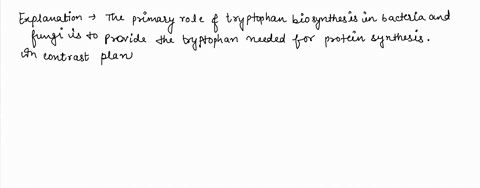 Explanation → The primary role of tryptophan biosynthesis in bacteria and
fungi is to provide the tryptophan needed for protein synthesis.
In contrast plan